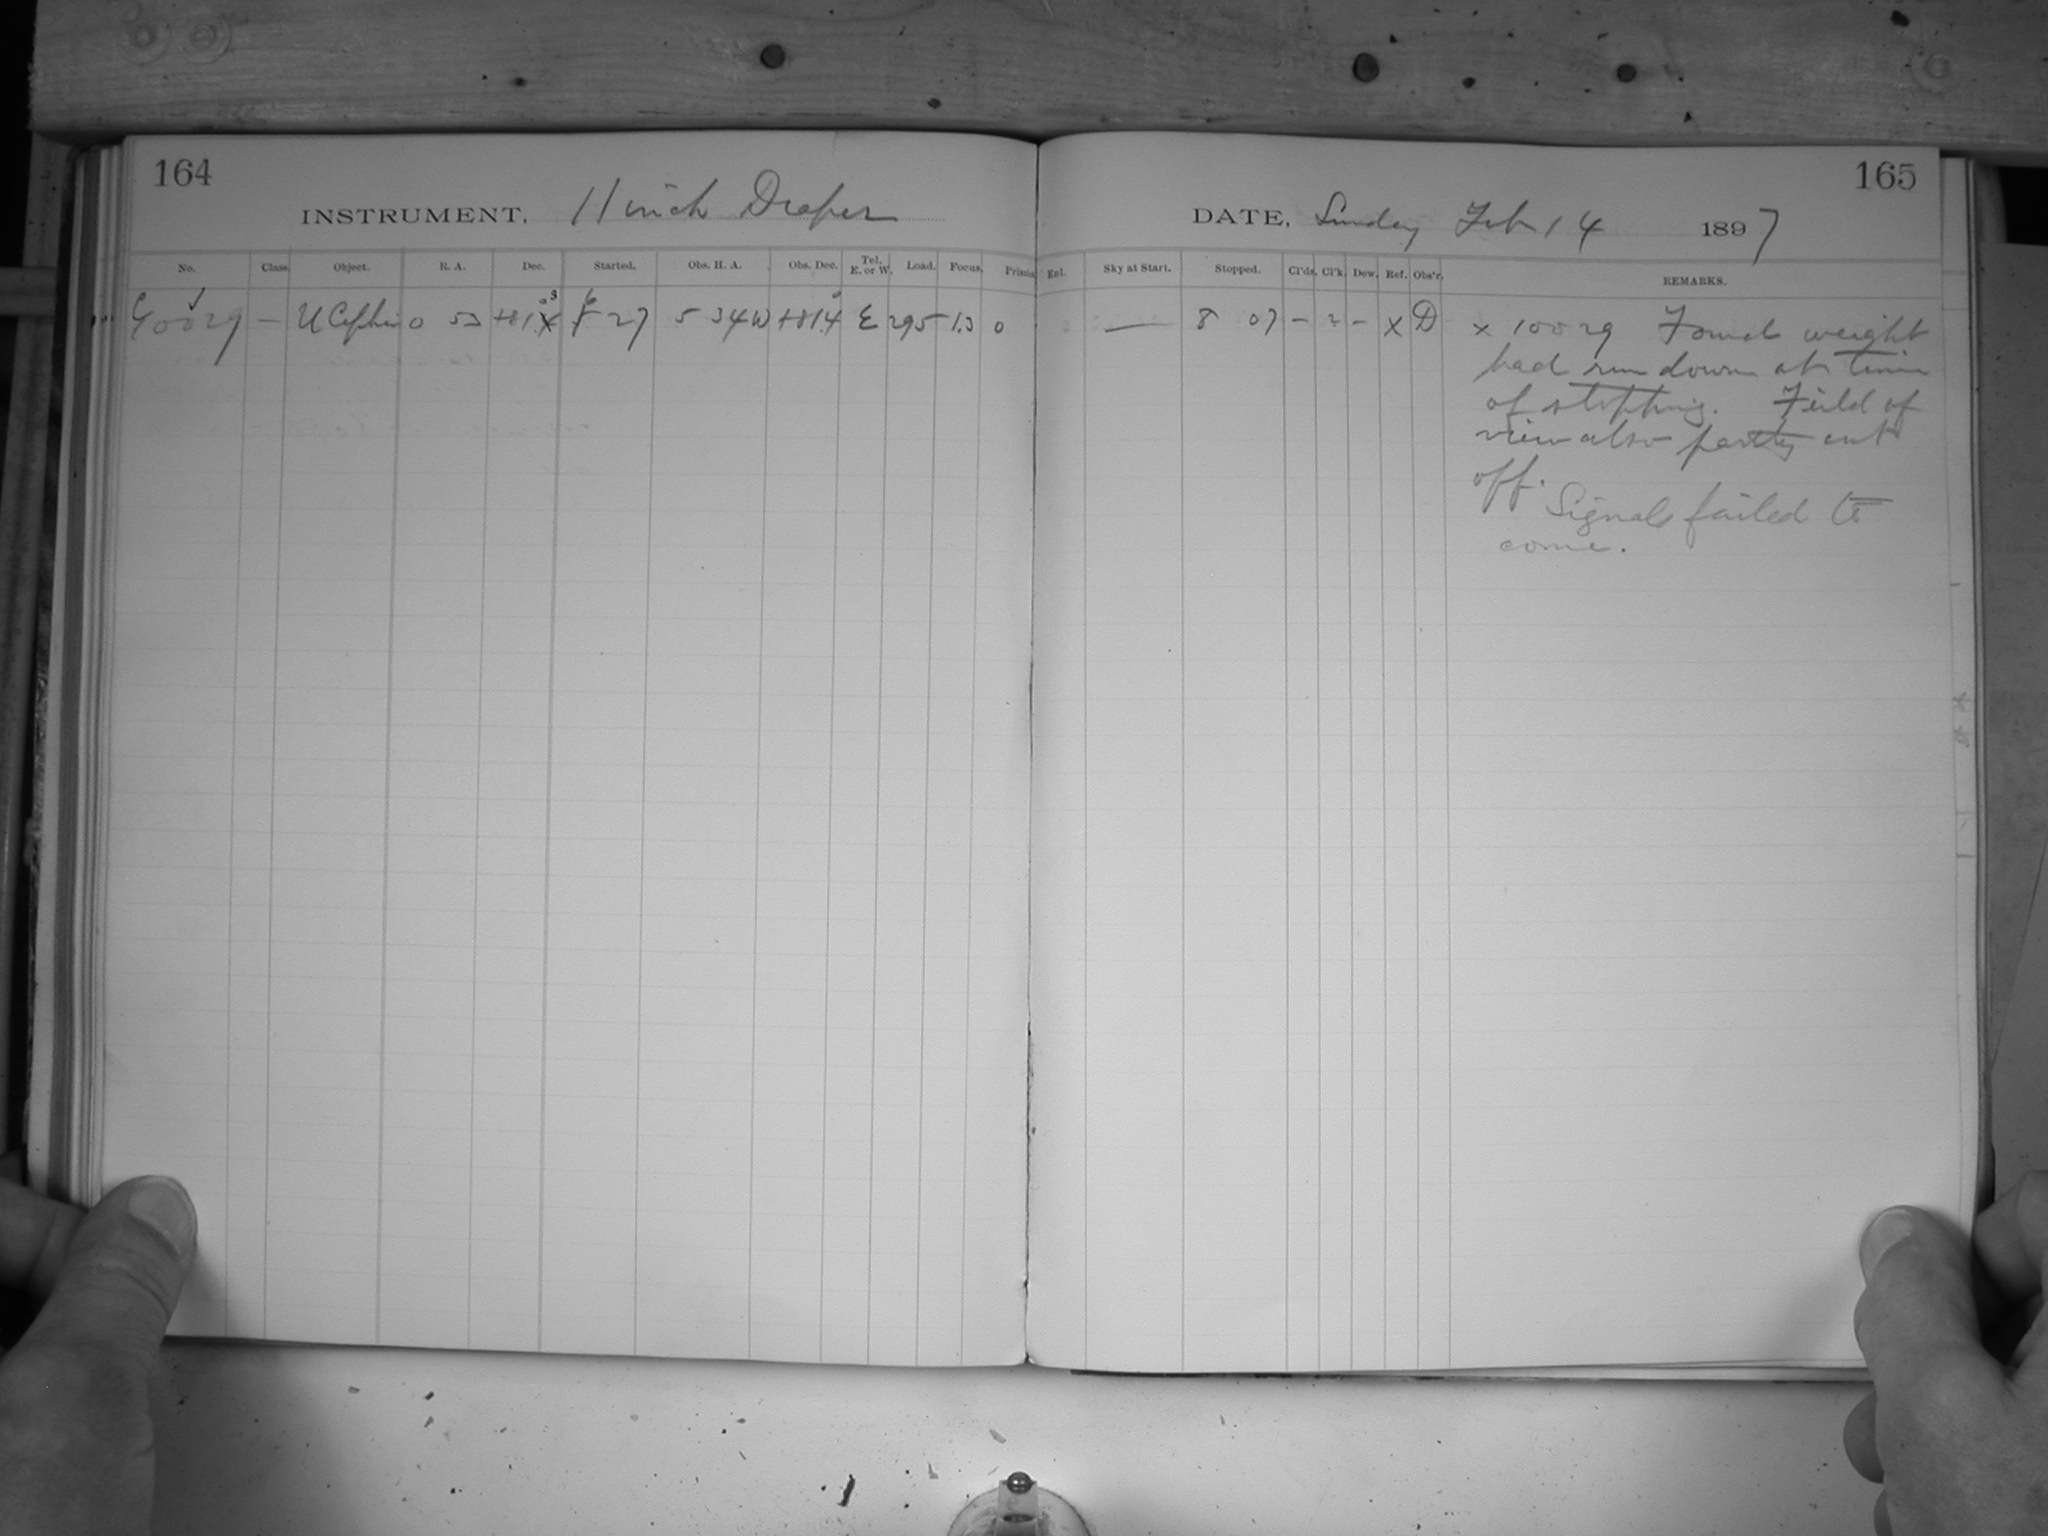 164
INSTRUMENT, 11 inch Draper
No. Class. Object. R. A. Dec. Started. Obs. H. A. Obs. Dec. Tel. E. or W. Load. Focus.
— U Cephei 0 53 27 5 34 W +81.4 E 295 1.3 0
165
DATE, Sunday Feb 14 1897
Enl. Sky at Start. Stopped. Cl'ds. Cl'k. Dew. Ref. Obs'r. REMARKS.
— 8 07 — 2 — X D x 10029 Found weight
had run down at time
of stopping. Field of
view also partly cut
off.
Signals failed to
come.